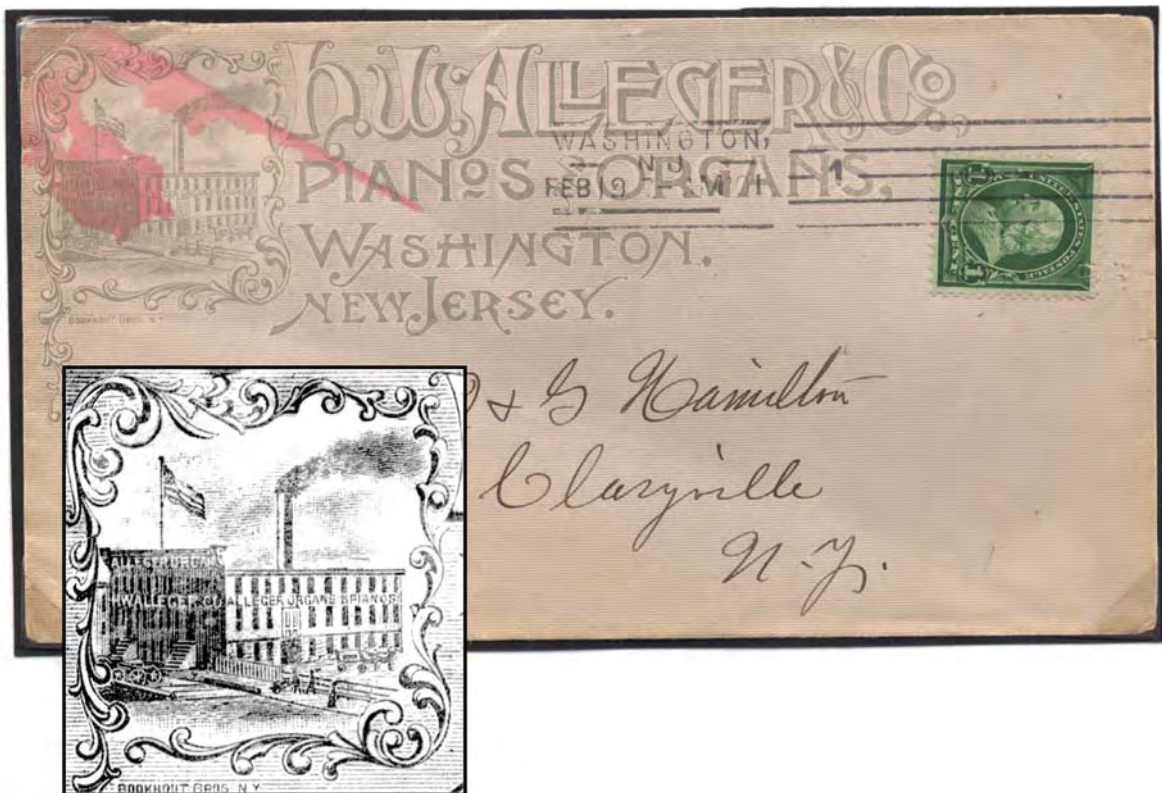 H.W. ALLEGER & CO.,
PIANOS & ORGANS,
WASHINGTON,
NEW JERSEY.
BOOKHOUT BROS. N.Y.
WASHINGTON,
N.J.
FEB 19
1
UNITED STATES POSTAGE
& G Hamilton
Claryville
N.Y.
ALLEGER ORGAN
H.W. ALLEGER & CO ALLEGER ORGANS & PIANOS
BOOKHOUT BROS. N.Y.